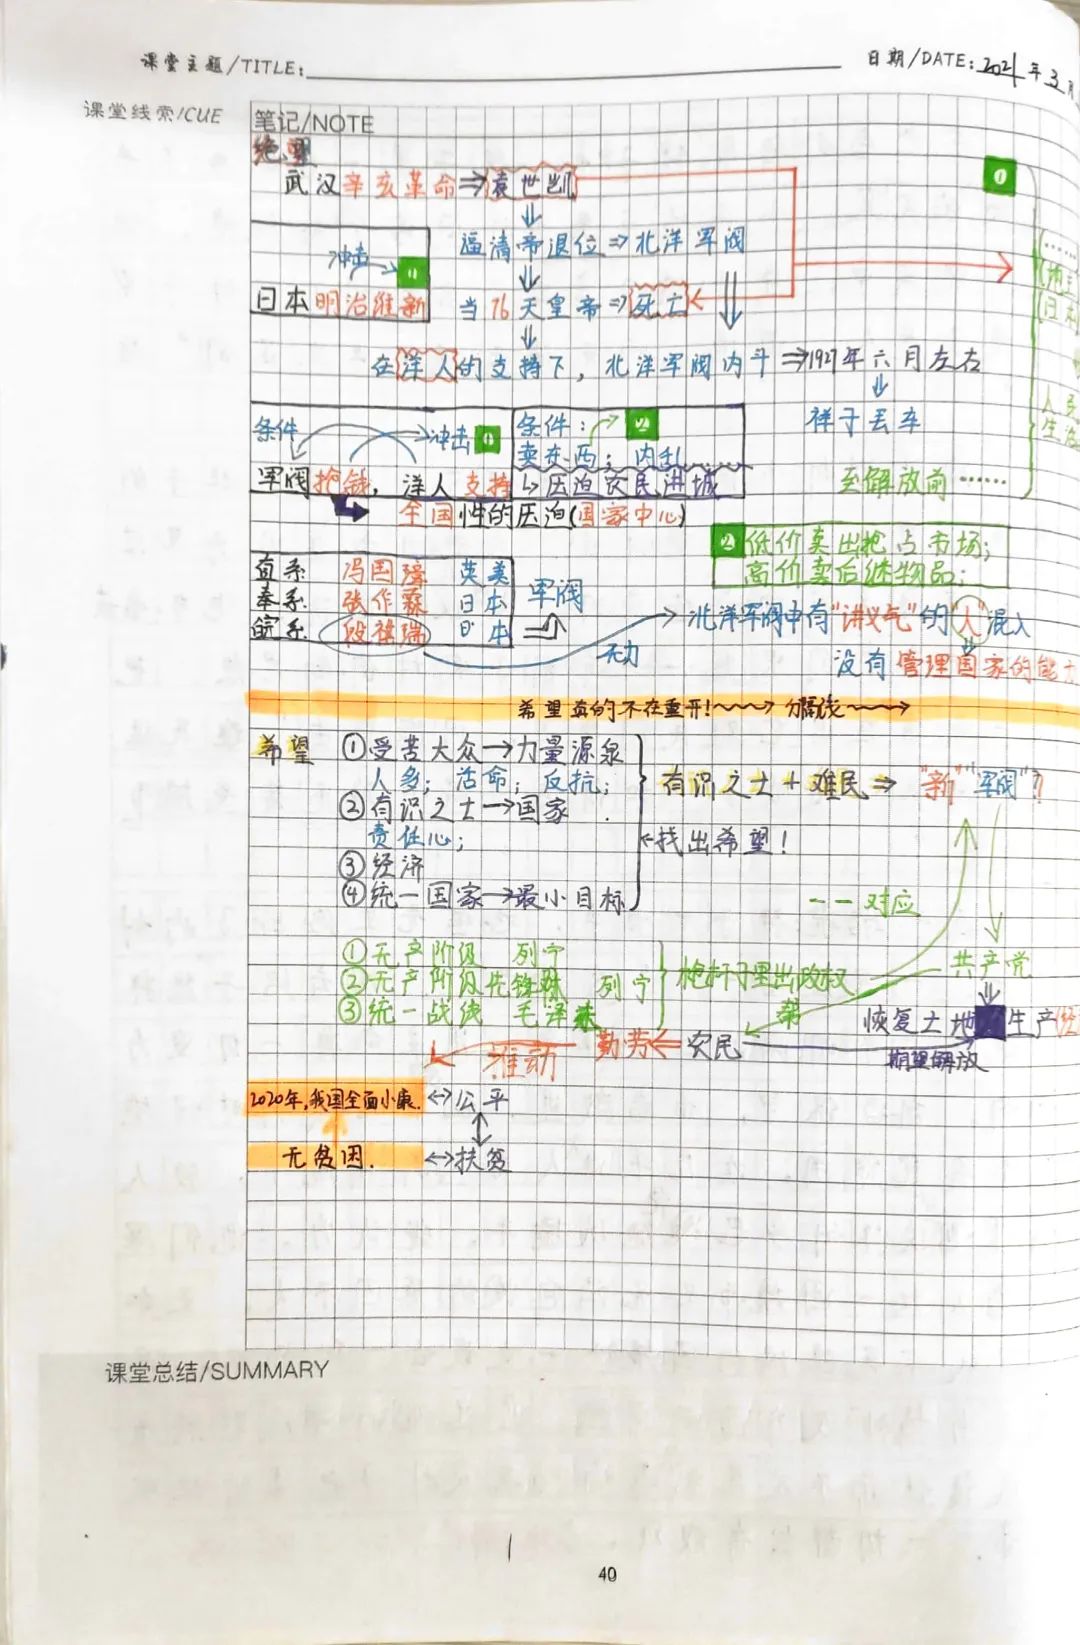 课堂主题/TITLE:
日期/DATE: 2021年3月
课堂线索/CUE
笔记/NOTE
绝望
武汉辛亥革命⇒袁世凯
1
逼清帝退位⇒北洋军阀
冲击
日本明治维新
当76天皇帝⇒死亡
在洋人的支持下，北洋军阀内斗⇒1921年六月左右
祥子丢车
至解放前……
条件 冲击
军阀抢钱，洋人支持
条件： 2
卖东西； 内乱
↳压迫农民进城
全国性的压迫(国家中心)
2 低价卖出抢占市场；
高价卖后继物品；
直系 冯国璋 英美
奉系 张作霖 日本
皖系 段祺瑞 日本
军阀
无力
北洋军阀中有"讲义气"的"人"混入
没有管理国家的能力
希望真的不在重开!~~→分隔线~~→
希望
①受苦大众→力量源泉
人多；活命；反抗；
②有识之士→国家
责任心；
③经济
④统一国家→最小目标
有识之士+难民⇒"新""军阀"？
←找出希望!
--对应
①无产阶级 列宁
②无产阶级先锋队 列宁
③统一战线 毛泽东
枪杆子里出政权
共产党
帮
恢复土地 生产
推动 勤劳⇐农民
期望解放
2020年,我国全面小康. ↔公平
无贫困. ↔扶贫
课堂总结/SUMMARY
40